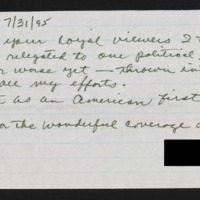 7/31/95
your loyal viewers I
relegated to one political
r worse yet — thrown in
all my efforts.
t as an American first
or the wonderful coverage